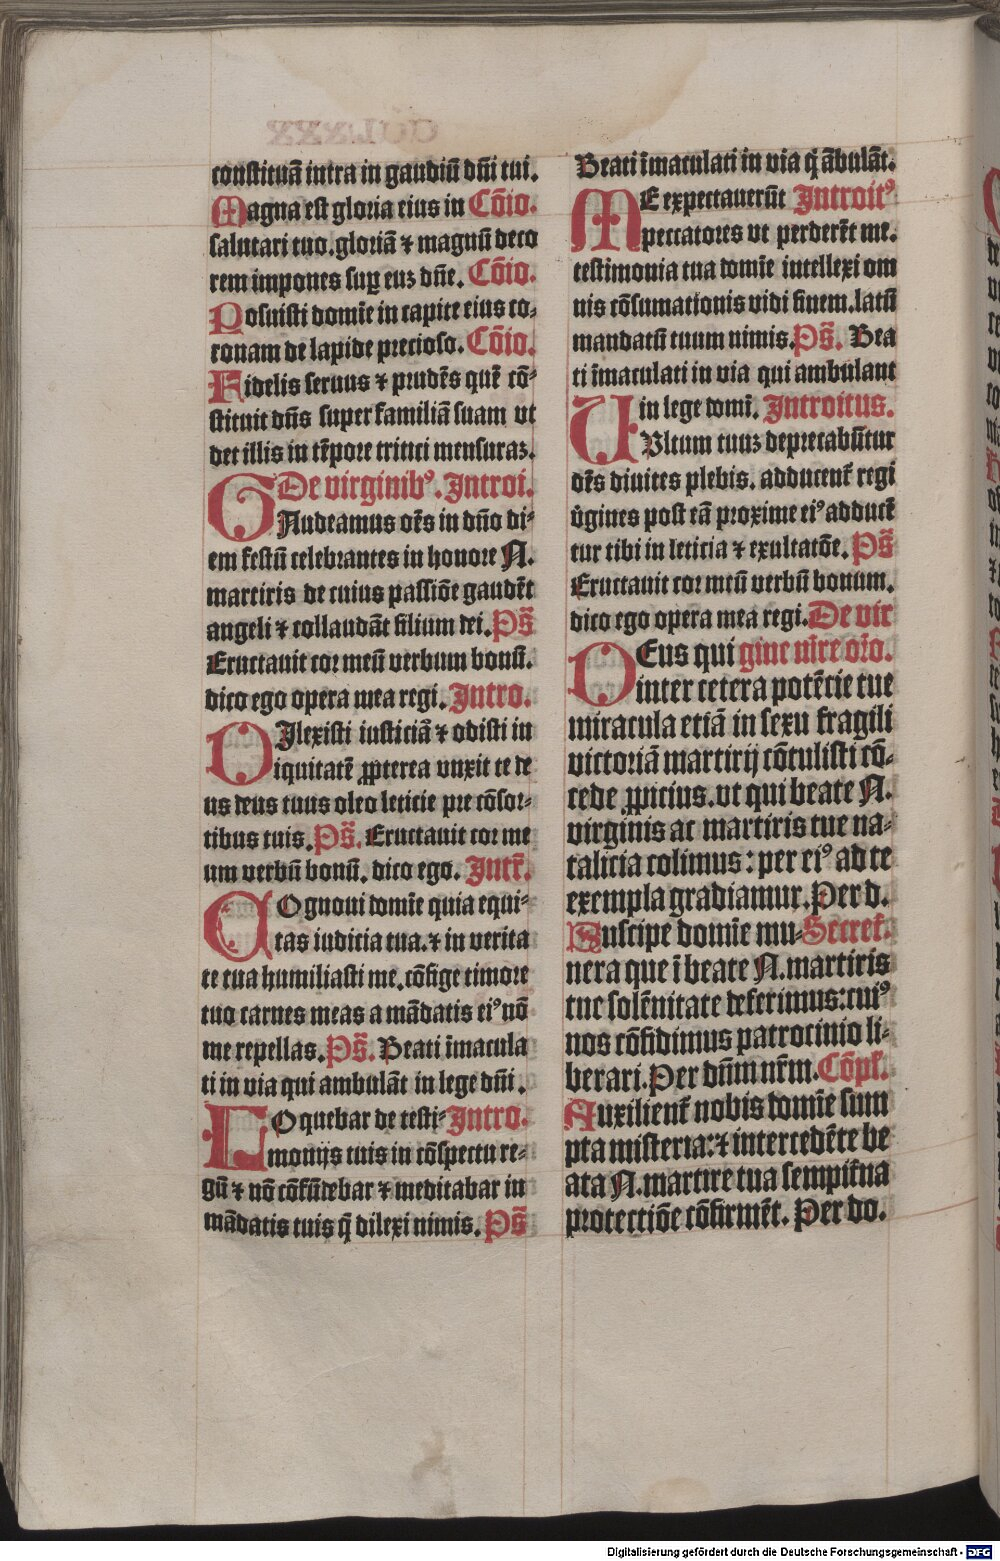 constituā intra in gaudiū dñi tui.
Magna est gloria eius in Cōio.
salutari tuo. gloriā ⁊ magnū deco
rem impones suꝑ euꝫ dñe. Cōio.
Posuisti domīe in capite eius co-
ronam de lapide precioso. Cōio.
Fidelis seruus ⁊ prudēs quē cō-
stituit dñs super familiā suam ut
det illis in tēpore tritici mensuraꝫ.
De virginibꝰ. Introi.
GAudeamus oēs in dño di-
em festū celebrantes in honore N.
martiris de cuius passiōe gaudēt
angeli ⁊ collaudāt filium dei. Ps̄
Eructauit cor meū verbum bonū.
dico ego opera mea regi. Intro.
DIlexisti iusticiā ⁊ odisti in
iquitatē ꝓpterea vnxit te de
us deus tuus oleo leticie pre cōsor-
tibus tuis. Ps̄. Eructauit cor me
um verbū bonū. dico ego. Intr̄.
COgnoui domīe quia equi-
tas iudicia tua. ⁊ in verita
te tua humiliasti me. cōfige timore
tuo carnes meas a mādatis eiꝰ nō
me repellas. Ps̄. Beati īmacula
ti in via qui ambulāt in lege dñi.
LOquebar de testi- Intro.
monijs tuis in cōspectu re-
gū ⁊ nō cōfūdebar ⁊ meditabar in
mādatis tuis q̄ dilexi nimis. Ps̄
Beati īmaculati in via q̄ ābulāt.
ME expectauerūt Introitꝰ
peccatores vt perderēt me.
testimonia tua domīe intellexi om
nis cōsumationis vidi finem. latū
mandatū tuum nimis. Ps̄. Bea
ti īmaculati in via qui ambulant
in lege domī. Introitus.
VUltum tuuꝫ deprecabūtur
oēs diuites plebis. adducent̄ regi
v̄gines post eā proxime eiꝰ adducē
tur tibi in leticia ⁊ exultatōe. Ps̄
Eructauit cor meū verbū bonum.
dico ego opera mea regi. De vir
DEus qui gine m̄re or̄o.
inter cetera potēcie tue
miracula etiā in sexu fragili
victoriā martirij cōtulisti cō-
cede ꝓpicius. vt qui beate N.
virginis ac martiris tue na-
talicia colimus: per eiꝰ ad te
exempla gradiamur. Per d.
Suscipe domīe mu- Secret̄.
nera que ī beate N. martiris
tue solēnitate deferimus: cuiꝰ
nos cōfidimus patrocinio li-
berari. Per dn̄m nr̄m. Cōpl̄.
Auxilient̄ nobis domīe sum
pta misteria: ⁊ intercedēte be
ata N. martire tua sempit̄na
protectiōe cōfirmēt. Per do.
Digitalisierung gefördert durch die Deutsche Forschungsgemeinschaft - DFG